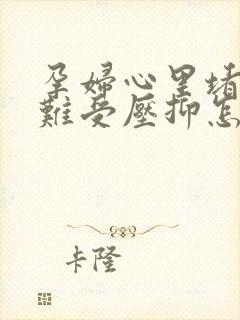 孕婦心里堵
難受壓抑怎
卡隆